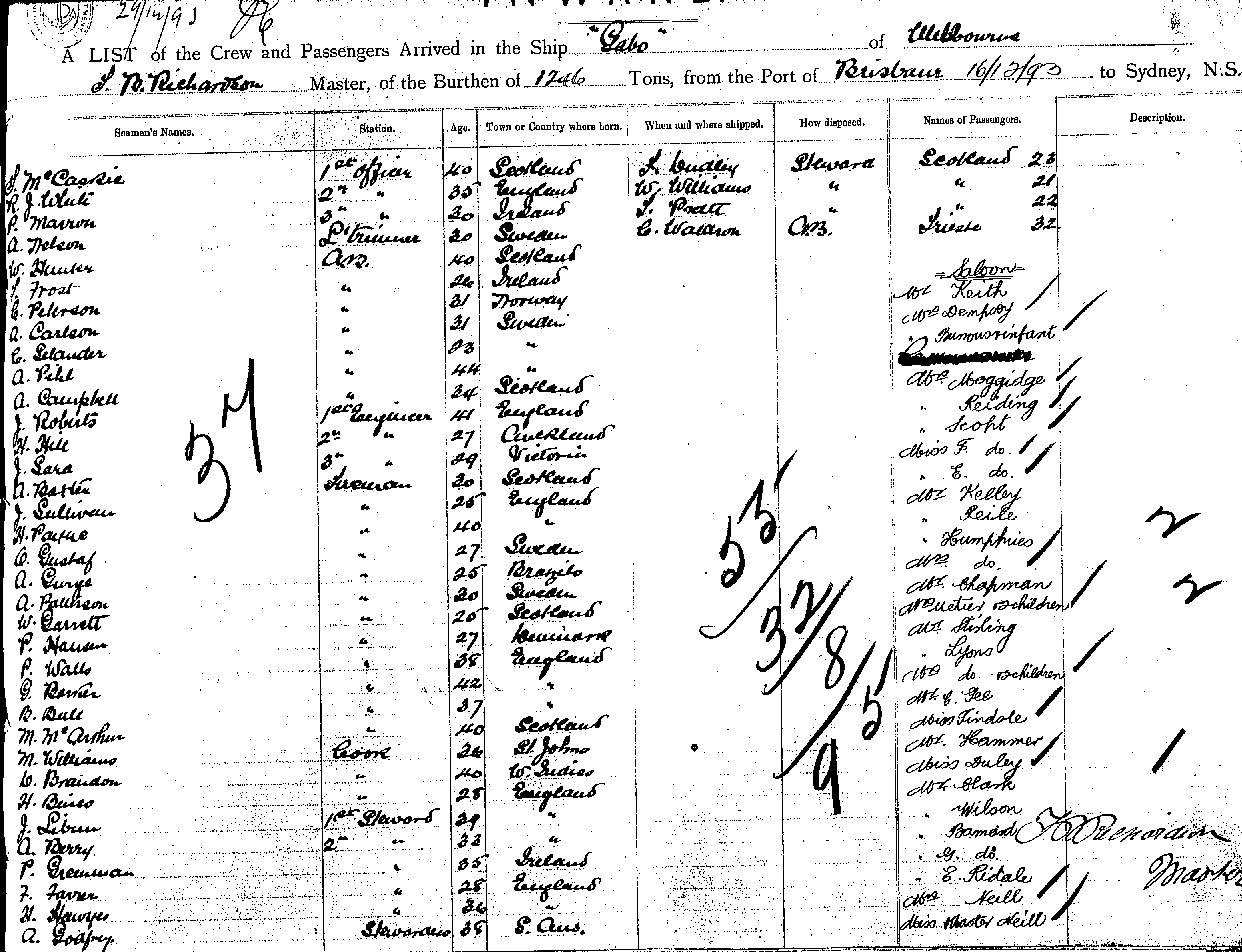 29/12/93
A LIST of the Crew and Passengers Arrived in the Ship "Gabo" of Melbourne
Richardson Master, of the Burthen of 1246 Tons, from the Port of Brisbane 16/12/93 to Sydney, N.S.
Seamen's Names. Station. Age. Town or Country where born. When and where shipped. How disposed. Names of Passengers. Description.
McCaskie 1st Officer 40 Scotland Dudley Steward Scotland 23
R. J. White 2nd " 35 England W. Williams " " 21
P. Marron 3rd " 30 Ireland Pratt " 22
A. Nelson Lp Trimmer 30 Sweden C. Waldron A.B. Trieste 32
W. Hunter A.B. 40 Scotland
Frost " 26 Ireland Saloon
C. Peterson " 31 Norway Mr Keith
A. Carlson " 31 Sweden Mrs Dempsey
C. Selander " 23 " " infant
A. Pihl " 44 "
A. Campbell " 34 Scotland Mrs Moggidge
J. Roberts 1st Engineer 41 England " Reiding
H. Hill 2nd " 27 Auckland " Scott
J. Lara 3rd " 29 Victoria Miss F. do.
A. Baxter Fireman 30 Scotland " E. do.
J. Sullivan " 25 England Mr Kelley
H. Payne " 40 "
Gustaf " 27 Sweden " Humphries
A. " 25 Brazils Mrs do.
A. Patterson " 30 Sweden Mr Chapman
W. Garrett " 25 Scotland children
P. Hansen " 27 Denmark Mr Stirling
P. Walls " 38 England " Lyons
G. Barker " 42 " Mrs do. children
B. Bull " 37 " Mr C. Gee
M. McArthur " 40 Scotland Miss Tindale
M. Williams Cook 26 St Johns Mr Hammer
Brandon " 40 W. Indies Miss Duley
H. Binns " 28 England Mr Clark
J. 1st Steward 39 " " Wilson
A. Berry 2nd " 33 " " Barnard
P. " 35 Ireland " G. do.
F. " 28 England " E. Ridale
H. Hawyes " 36 " Mrs Neill
A. Godfrey Stewardess 38 S. Aus. Miss Master Neill
37
53
32
8
5
9
2
2
Richardson
Master